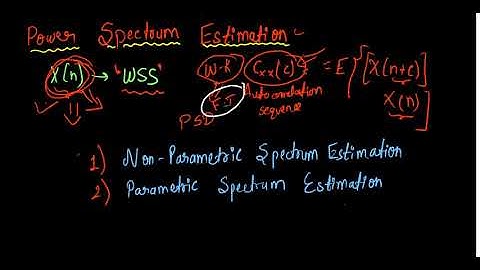 Power Spectrum Estimation:-
X(n) → "WSS" W-K Cxx(τ) = E{[X(n+τ)]
X(n)]
F.T Autocorrelation
sequence
PSD
1) Non-Parametric Spectrum Estimation
2) Parametric Spectrum Estimation